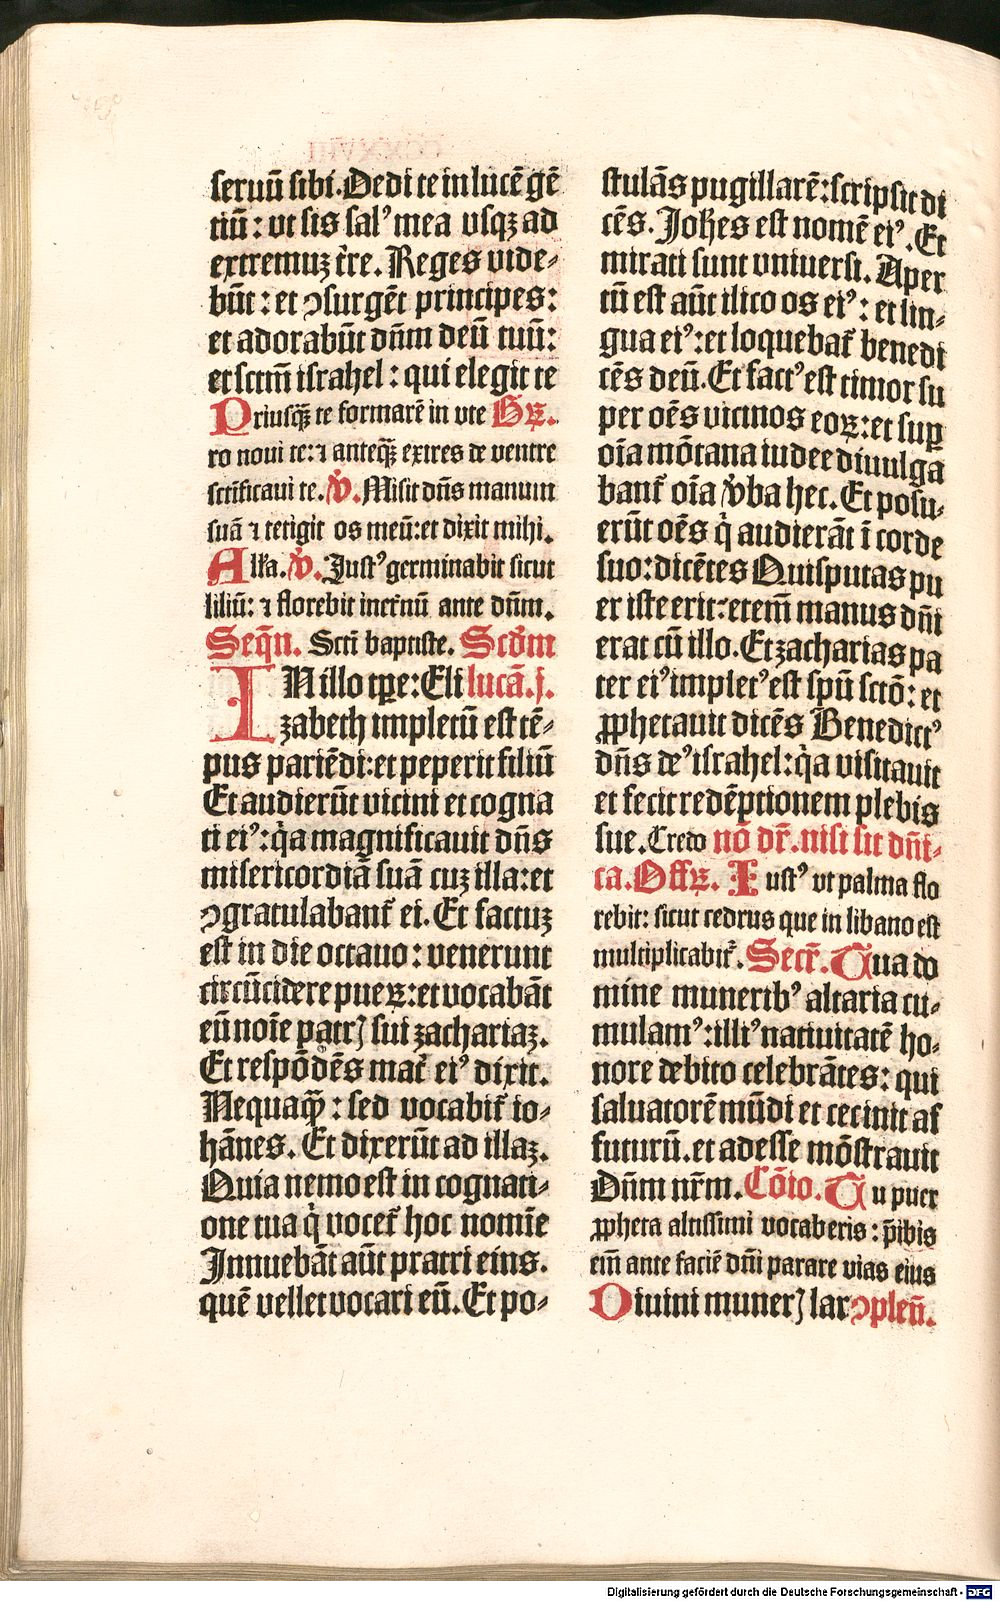 seruū sibi. Dedi te in lucē gē
tiū: vt sis salꝰ mea vsqꝫ ad
extremuꝫ t̄re. Reges vide⸗
būt: et ↄsurgēt principes:
et adorabūt dn̄m deū tuū:
et sctm̄ israhel: qui elegit te
Priusqꝫ̄ te formarē in vte Gꝝ.
ro noui te: ⁊ anteqꝫ̄ exires de ventre
sctīficaui te. v̄. Misit dn̄s manum
suā ⁊ tetigit os meū: et dixit mihi.
Alľa. v̄. Justꝰ germinabit sicut
liliū: ⁊ florebit inet̄nū ante dn̄m.
Seqn̄. Scti baptiste. Scd̄m
IN illo tꝑe: Eli lucā. j.
zabeth impletū est tē⸗
pus pariēdi: et peperit filiū
Et audierūt vicini et cogna
ti eiꝰ: q̄a magnificauit dn̄s
misericordiā suā cuꝫ illa: et
ↄgratulabant̄ ei. Et factuꝫ
est in die octauo: venerunt
circūcidere pueꝝ: et vocabāt
eū noīe patrꝭ sui zachariaꝫ.
Et respōdēs mat̄ eiꝰ dixit.
Nequaqꝫ̄: sed vocabit̄ io⸗
hānes. Et dixerūt ad illaꝫ.
Quia nemo est in cognati⸗
one tua q̄ vocet̄ hoc nomīe
Innuebāt aūt pratri eius.
quē vellet vocari eū. Et po⸗
stulās pugillarē: scripsit di
cēs. Joħes est nomē eiꝰ. Et
mirati sunt vniuersi. Aper
tū est aūt ilico os eiꝰ: et lin⸗
gua eiꝰ: et loquebat̄ benedi
cēs deū. Et factꝰ est timor su
per oēs vicinos eoꝝ: et suꝑ
oīa mōtana iudee diuulga
bant̄ oīa v̄ba hec. Et posu⸗
erūt oēs q̄ audierāt ī corde
suo: dicētes Quisputas pu
er iste erit: etem̄ manus dn̄i
erat cū illo. Et zacharias pa
ter eiꝰ impletꝰ est spū sctō: et
ꝓphetauit dicēs Benedictꝰ
dn̄s deꝰ israhel: q̄a visitauit
et fecit redēptionem plebis
sue. Credo nō dr̄. nisi sit dn̄i⸗
ca. Offꝝ. Iustꝰ vt palma flo
rebit: sicut cedrus que in libano est
multiplicabit̄. Secr̄. Tua do
mine muneribꝰ altaria cu⸗
mulamꝰ: illiꝰ natiuitatē ho⸗
nore debito celebrātes: qui
saluatorē mūdi et cecinit af
futurū. et adesse mōstrauit
Dn̄m nr̄m. Cōio. Tu puer
ꝓpheta altissimi vocaberis: p̄ibis
em̄ ante faciē dn̄i parare vias eius
Diuini munerꝭ lar ↄplen̄.
Digitalisierung gefördert durch die Deutsche Forschungsgemeinschaft - DFG